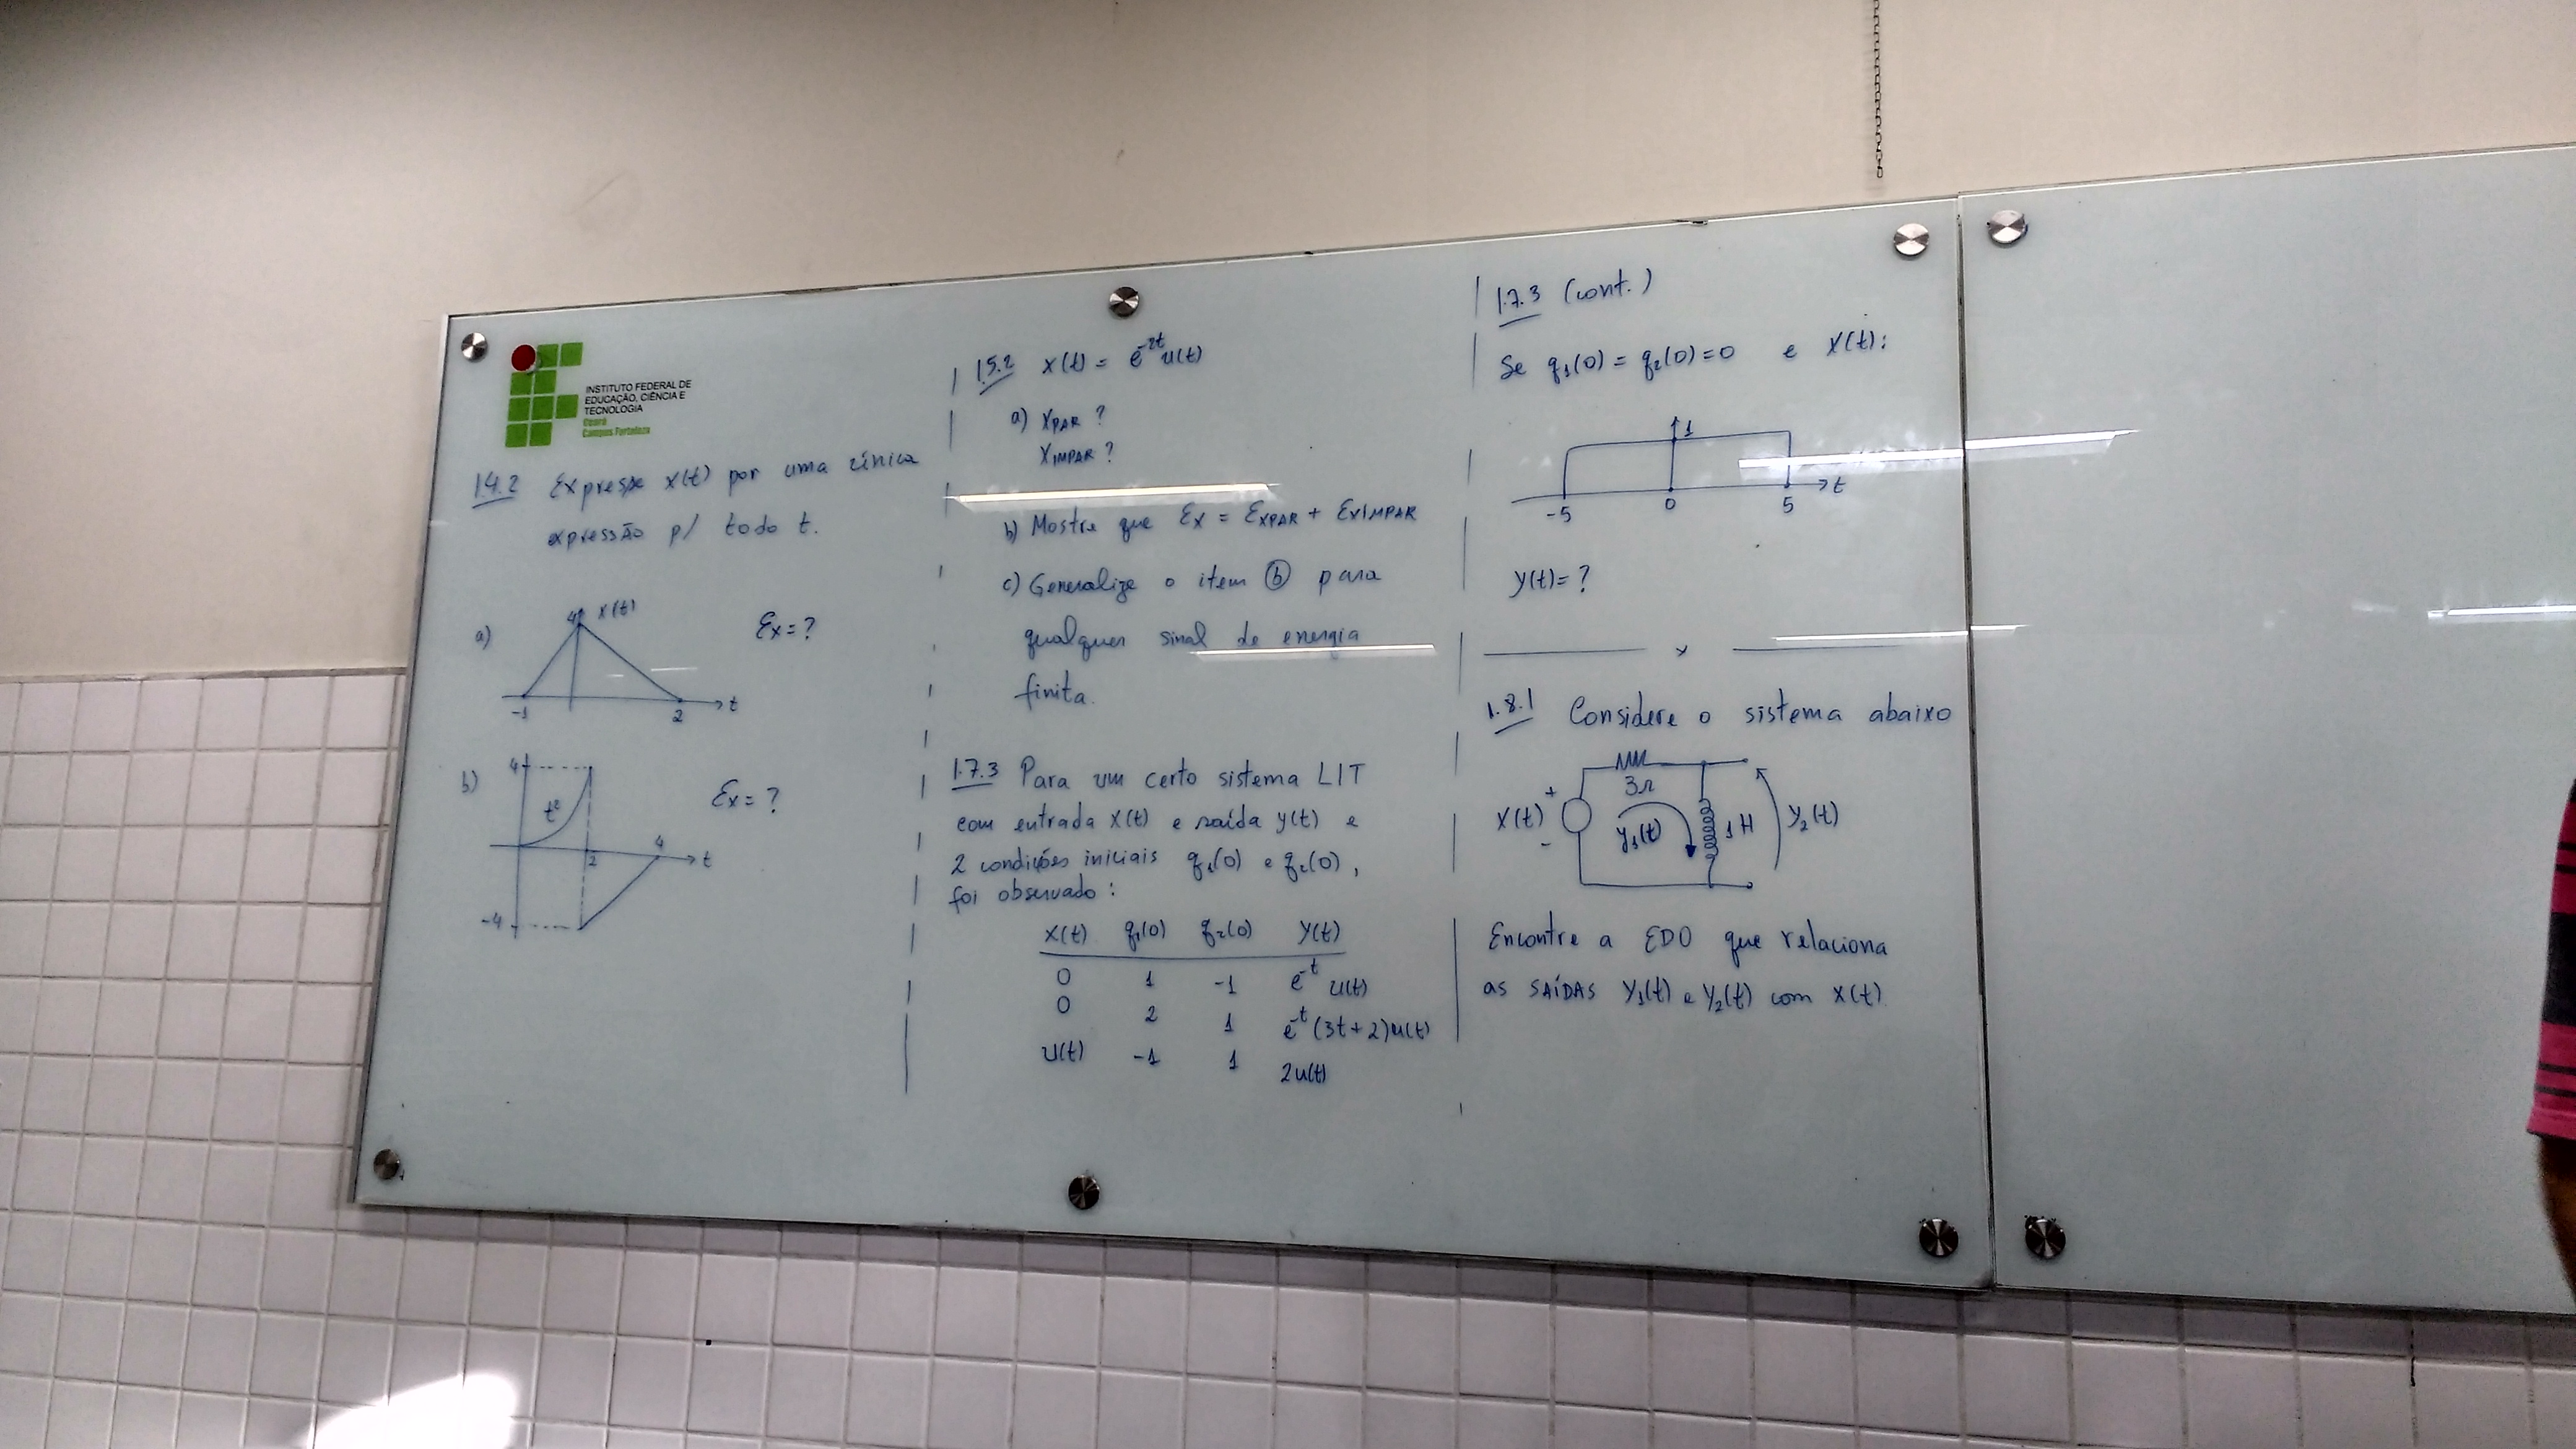 INSTITUTO FEDERAL DE
EDUCAÇÃO, CIÊNCIA E
TECNOLOGIA
Ceará
Campus Fortaleza
1.4.2 Expresse x(t) por uma única
expressão p/ todo t.
a)
4 x(t)
Ex = ?
-1 2 t
b)
4
t²
Ex = ?
2 4 t
-4
1.5.2 x(t) = e^-2t u(t)
a) XPAR ?
XIMPAR ?
b) Mostre que Ex = EXPAR + EXIMPAR
c) Generalize o item (b) para
qualquer sinal de energia
finita.
1.7.3 Para um certo sistema LIT
com entrada x(t) e saída y(t) e
2 condições iniciais q1(0) e q2(0),
foi observado:
x(t) q1(0) q2(0) y(t)
0 1 -1 e^-t u(t)
0 2 1 e^-t (3t+2)u(t)
u(t) -1 1 2u(t)
1.7.3 (cont.)
Se q1(0) = q2(0) = 0 e x(t):
1
-5 0 5 t
y(t) = ?
x
1.8.1 Considere o sistema abaixo
3Ω
+
x(t) y1(t) 1H y2(t)
-
Encontre a EDO que relaciona
as SAÍDAS y1(t) e y2(t) com x(t)